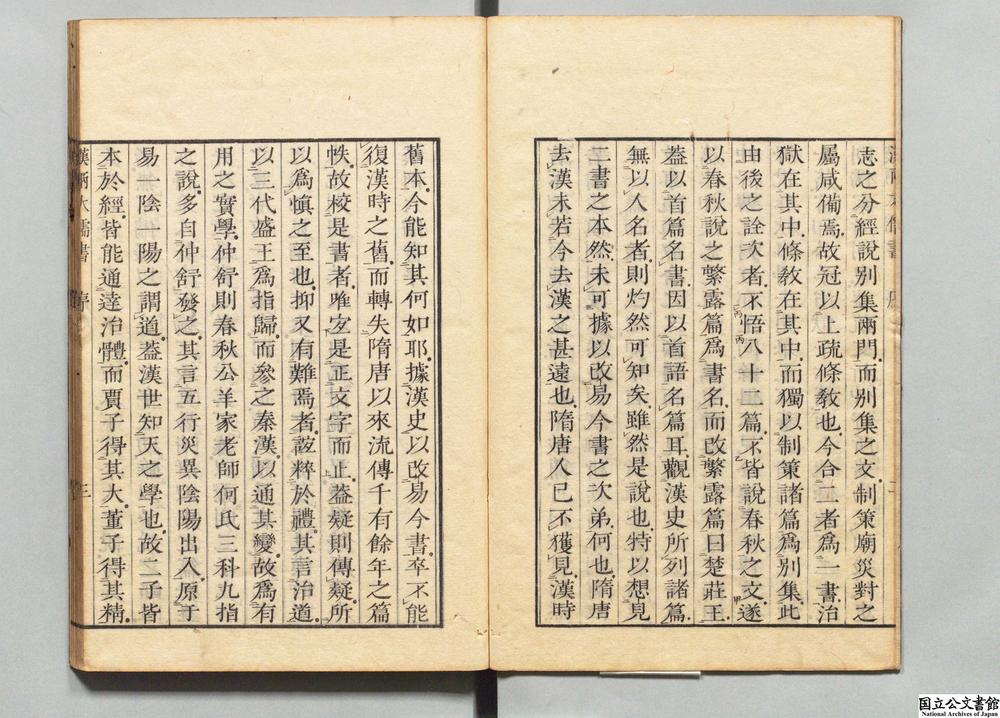 志之分經說別集兩門而別集之文制策廟災對之
屬咸備焉故冠以上疏條敎也今合二者爲一書治
獄在其中條敎在其中而獨以制策諸篇爲別集此
由後之詮次者不悟八十二篇不皆說春秋之文遂
以春秋說之繁露篇爲書名而改繁露篇曰楚莊王
葢以首篇名書因以首語名篇耳觀漢史所列諸篇
無以人名者則灼然可知矣雖然是說也特以想見
二書之本然未可據以改易今書之次弟何也隋唐
去漢未若今去漢之甚遠也隋唐人已不獲見漢時
舊本今能知其何如耶據漢史以改易今書卒不能
復漢時之舊而轉失隋唐以來流傳千有餘年之篇
帙故校是書者唯宜是正文字而止葢疑則傳疑所
以爲慎之至也抑又有難焉者誼粹於禮其言治道
以三代盛王爲指歸而參之秦漢以通其變故爲有
用之實學仲舒則春秋公羊家老師何氏三科九指
之說多自仲舒發之其言五行災異陰陽出入原于
易一陰一陽之謂道葢漢世知天之學也故二子皆
本於經皆能通達治體而賈子得其大董子得其精
漢兩大儒書 序 三
国立公文書館
National Archives of Japan